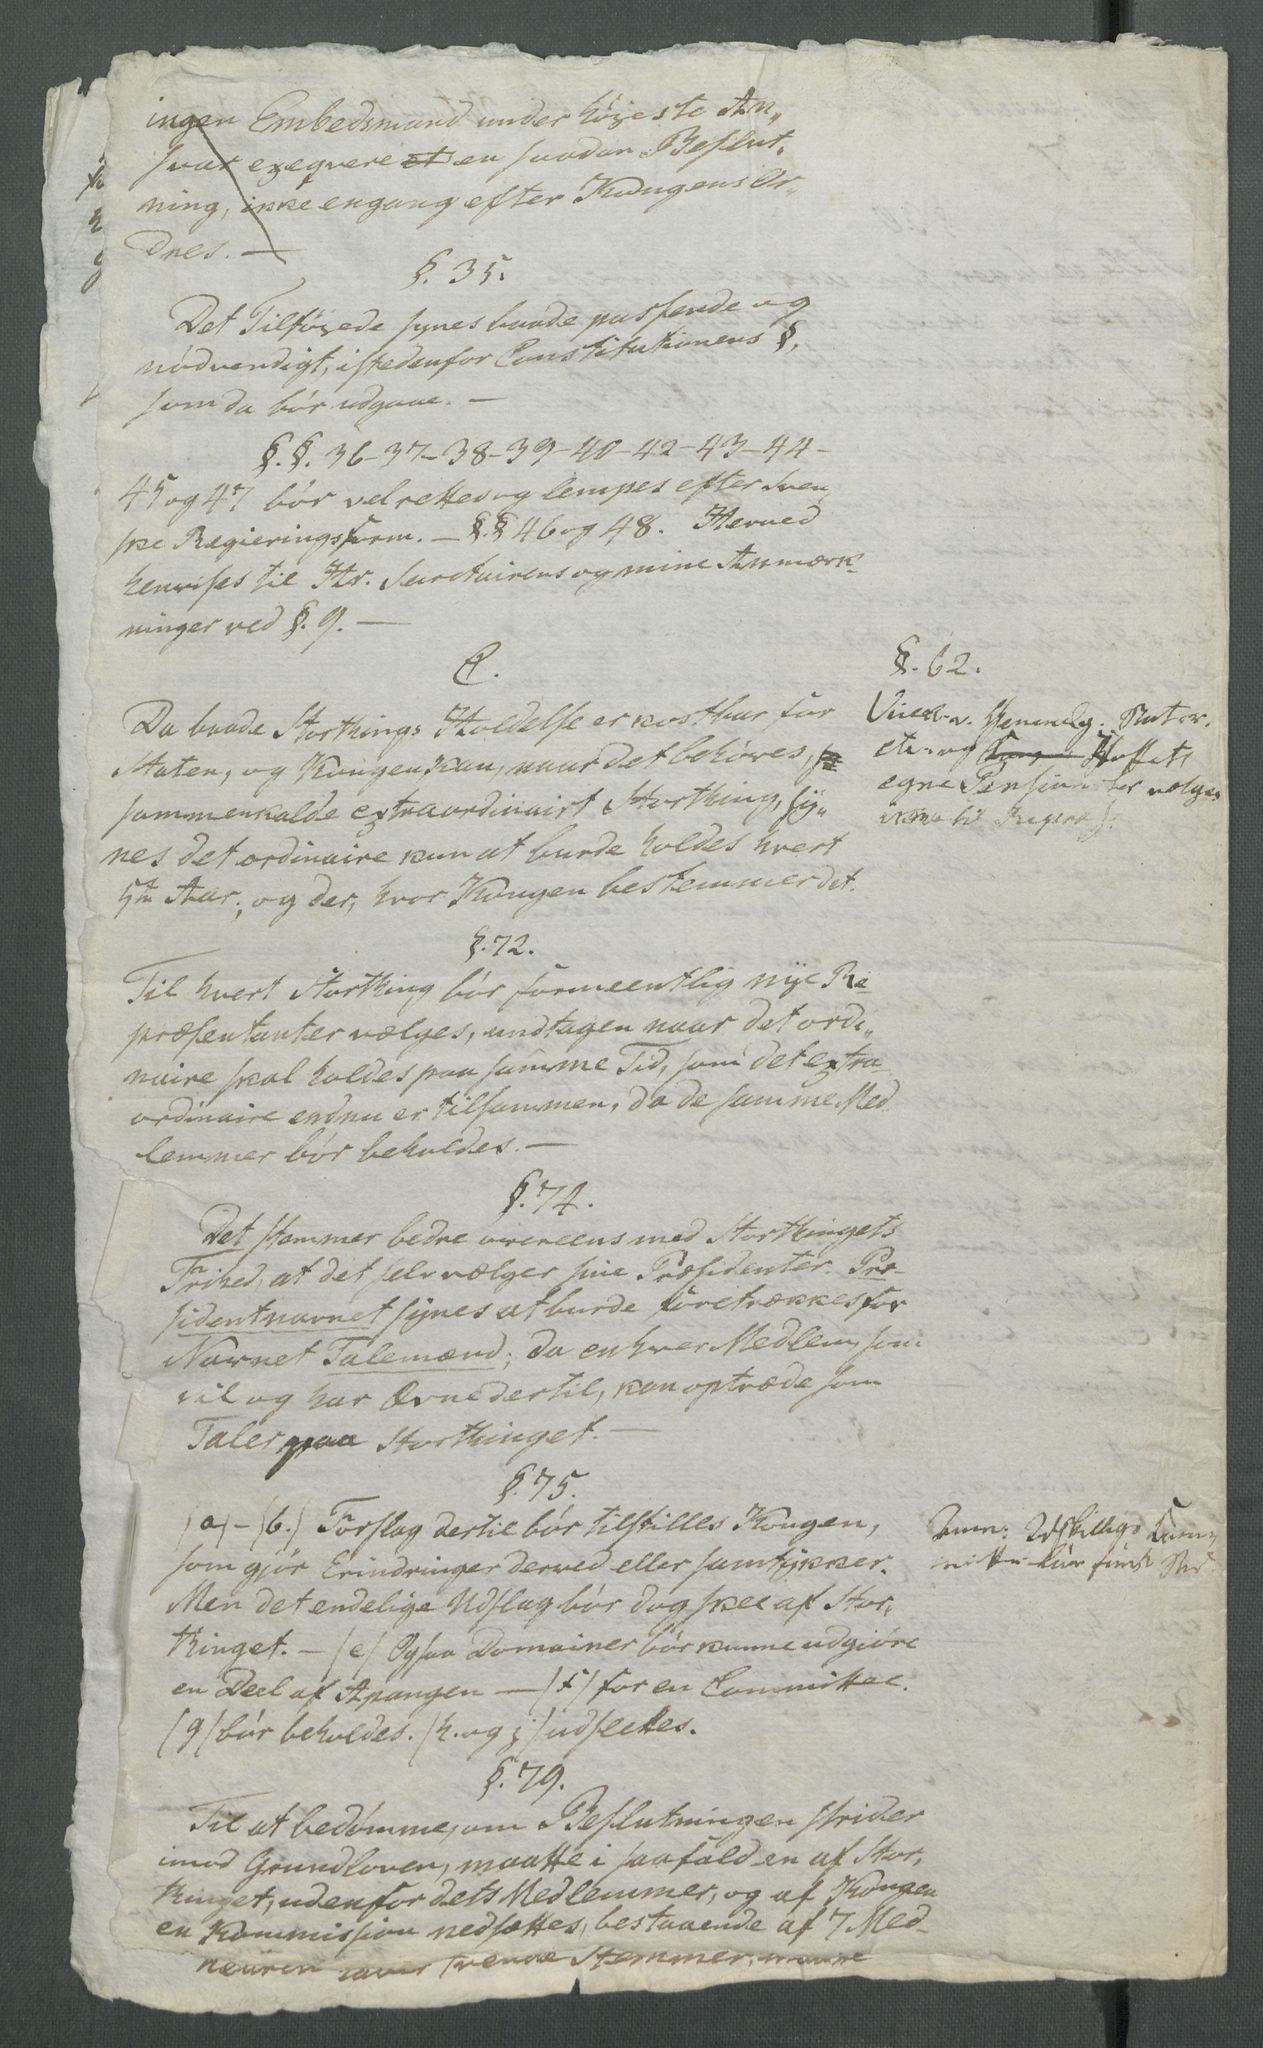 ingen Embedsmand under høieste An„
svar exeqvere et en saadan Beslut„
ning, ikke engang efter Kongens Or„
dres. —
§. 35.
Det Tilføiede synes baade passende og
nødvendigt, istedenfor Constitutionens §,
som da bör udgaae. —
§.§. 36-37-38-39-40-42-43-44-
45 og 47 bör vel rettes og lempes efter Sven„
ske Regieringsform. — §.§ 46 og 48. Herved
henvises til Hr. Secretairens og mine Anmærk-
ninger ved §. 9. —
C.
Da baade Storthings Holdelse er kostbar for
Staten, og Kongen kan, naar det behöves,
sammenkalde extraordinairt Storthing, sy„
nes det ordinaire kun at burde holdes hvert
5te Aar; og der, hvor Kongen bestemmer det.
§. 62.
egne Pension
§. 72.
Til hvert Storthing bör formeentlig nye Re
præsentanter vælges, undtagen naar det ordi„
naire skal holdes paa samme Tid, som det extra
ordinaire endnu er tilsammen, da de samme Med
lemmer bör beholdes. —
§. 74.
Det stemmer bedre overeens med Storthingets
Frihed, at det selv vælger sine Præsidenter. Præ-
sidentnavnet synes at burde foretrækkes for
Navnet Talemænd; da enhver Medlem, som
vil og har Evne dertil, kan optræde som
Taler paa Storthinget. —
§. 75.
(a) - (b.) Forslag dertil bör tilstilles Kongen,
som gjör Erindringer derved eller samtykker.
Men det endelige Udslag bör dog skee af Stor„
thinget. — (e) Ogsaa Domainer bör kunne udgiöre
en Deel af Apangen — (f) for en Committee.
(g) bör beholdes. (h. og i) udslettes.
§. 79.
Til at bedömme, om Beslutningen strider
imod Grundloven, maatte i saafald en af Stor„
thinget, udenfor dets Medlemmer, og af Kongen
en Kommission nedsættes, bestaaende af 7 Med
Stemmer, maatte